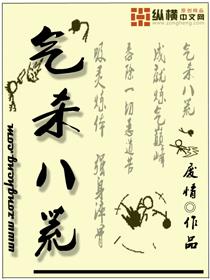 纵横 原创精品
中文网
www.zongheng.com
气杀八荒
气杀八荒
成就炼气巅峰
除一切恶道苦
灵炼体 强身淬骨
情◎作品
www.zongheng.com